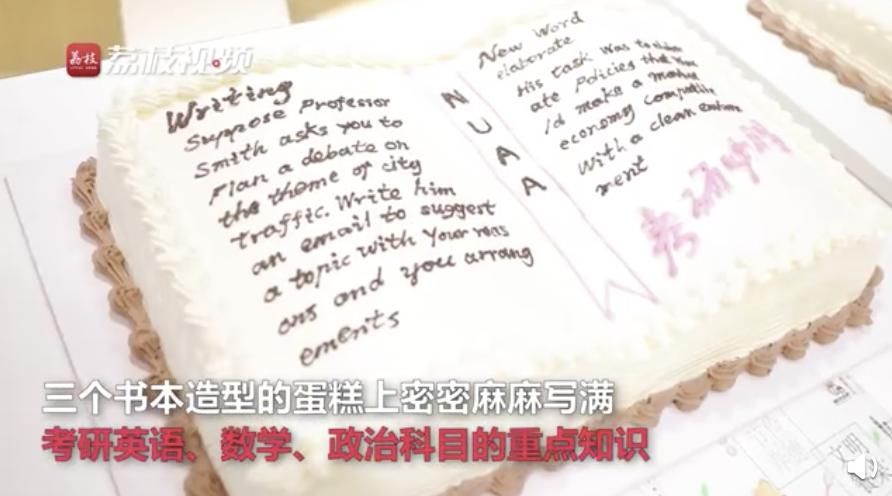 荔枝
荔枝视频
Writing
Suppose Professor
Smith asks you to
Plan a debate on
the theme of city
traffic. Write him
an email to suggest
a topic with your reas
ons and you arrang
ements
NUAA
New Word
elaborate
His task was to
ate policies that
ld make a
economy compatible
With a clean
ment
考研
三个书本造型的蛋糕上密密麻麻写满
考研英语、数学、政治科目的重点知识